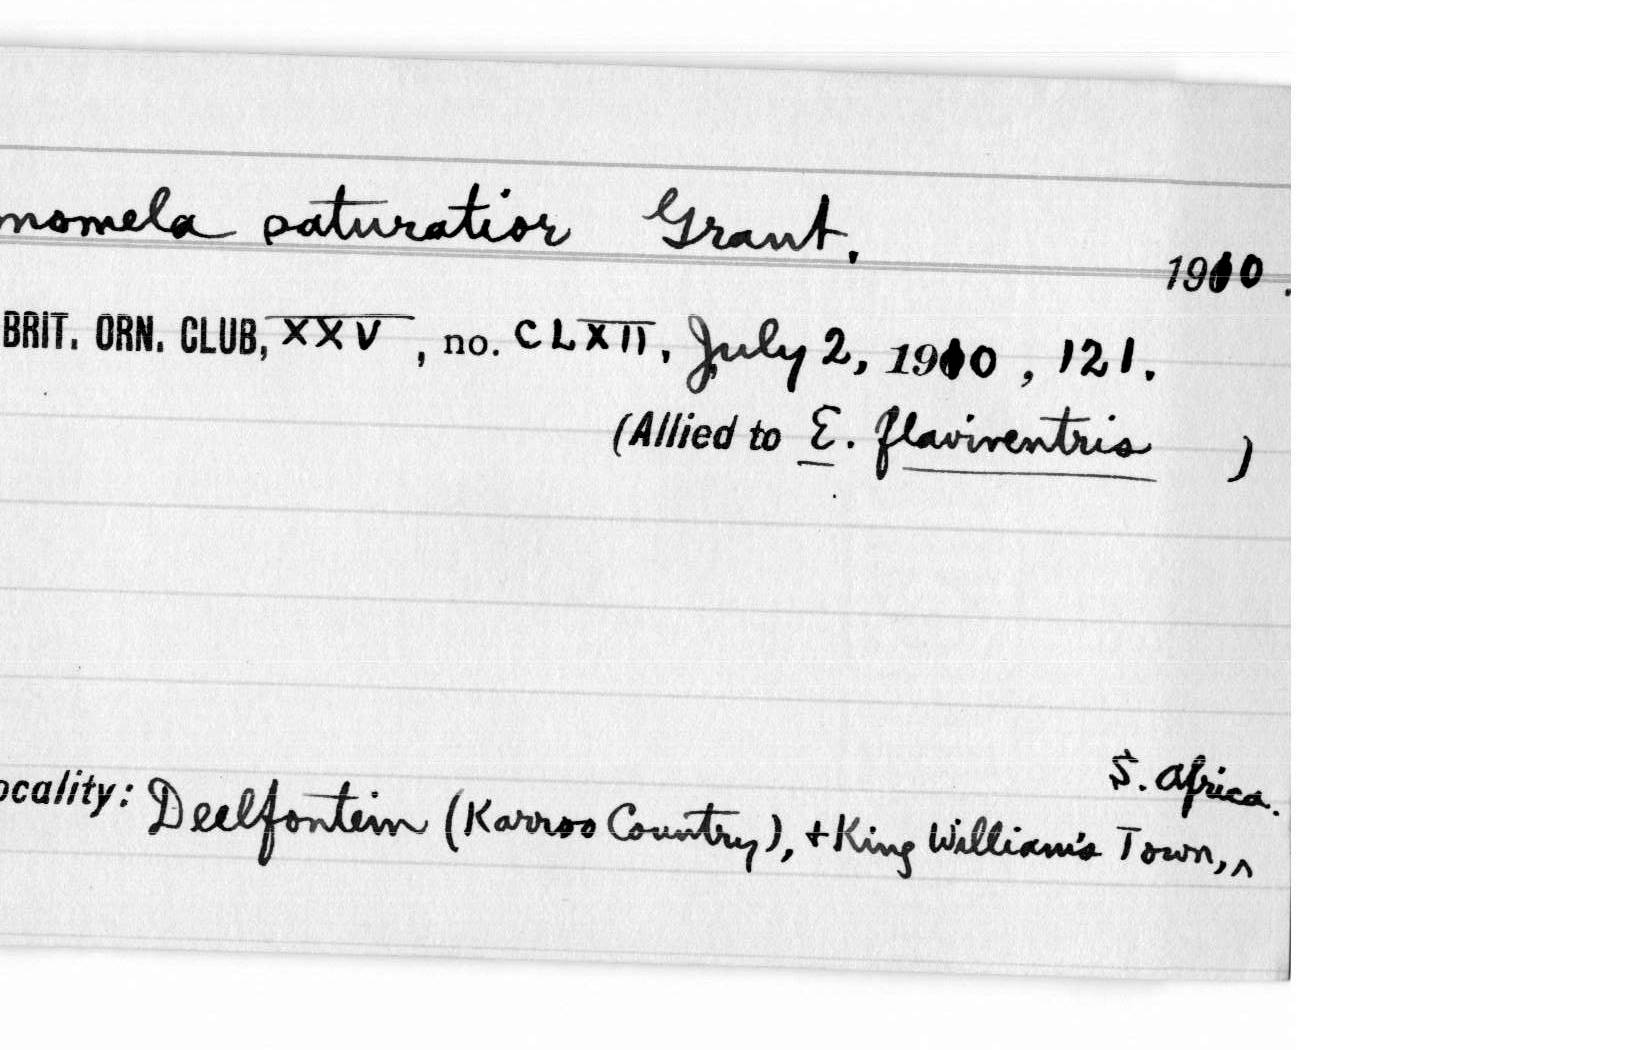 nomela saturatior Grant.
1910.
BRIT. ORN. CLUB, XXV, no. CLXII, July 2, 1910, 121.
(Allied to E. flaviventris )
S. Africa.
ocality: Deelfontein (Karroo Country), + King William's Town, ^